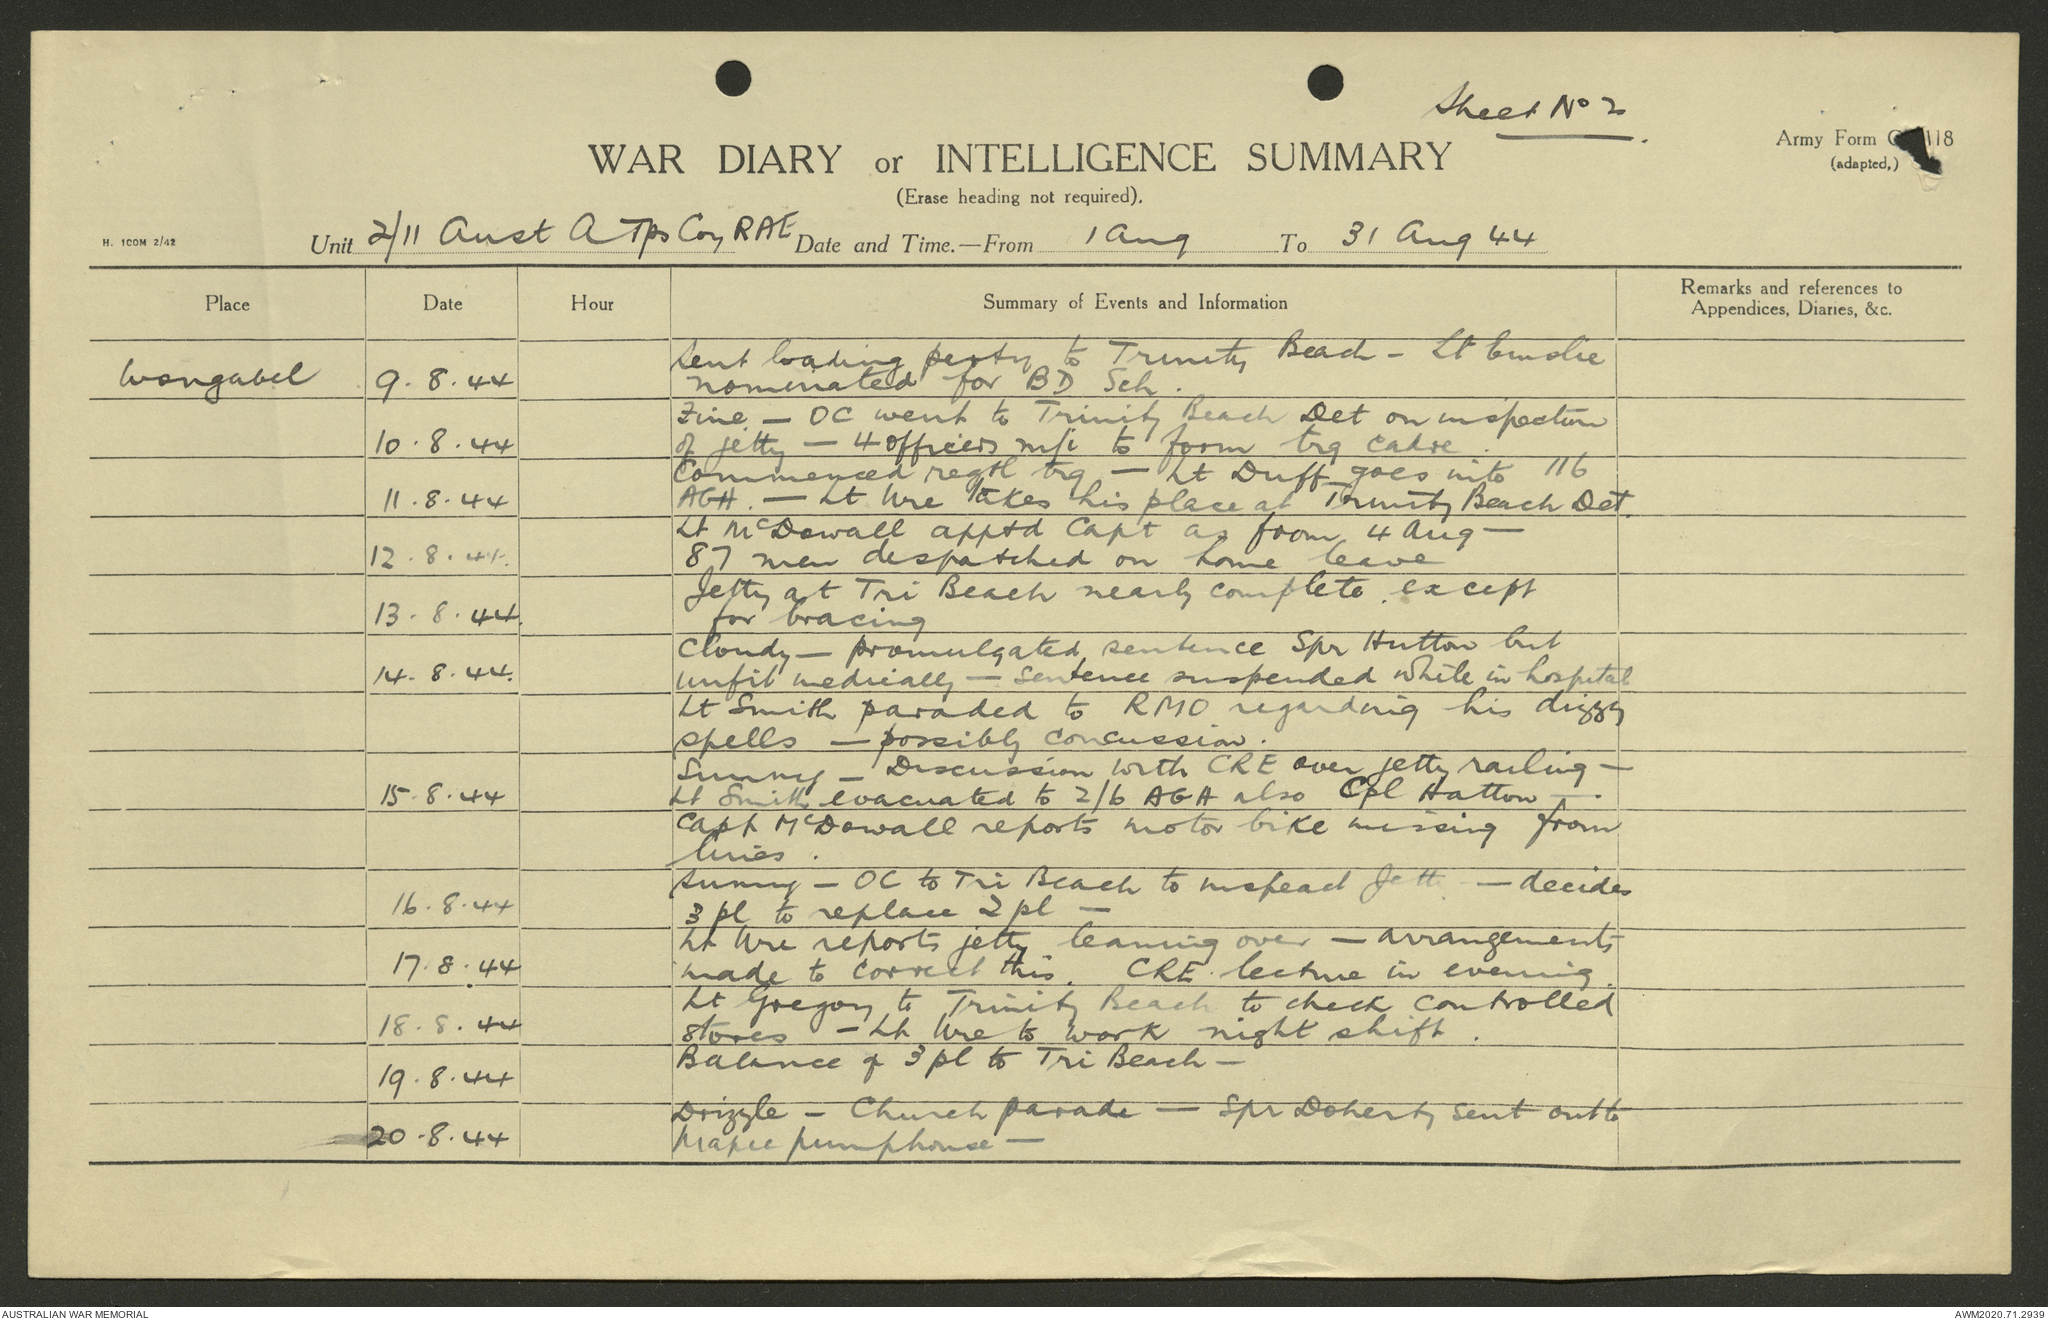 Sheet No 2
Army Form C 118
(adapted,)
WAR DIARY or INTELLIGENCE SUMMARY
(Erase heading not required).
H. 1COM 2/42
Unit 2/11 Aust A Tps Coy RAE Date and Time.—From 1 Aug To 31 Aug 44
Place Date Hour Summary of Events and Information Remarks and references to
Appendices, Diaries, &c.
Sent loading party to Trinity Beach - Lt Emslie
Wongabel 9.8.44 nominated for BD Sch.
Fine - OC went to Trinity Beach Det on inspection
10.8.44 of jetty - 4 officers m/i to form trg cadre.
Commenced regtl trg - Lt Duff goes into 116
11.8.44 AGH. - Lt Ure takes his place at Trinity Beach Det.
Lt McDowall apptd Capt as from 4 Aug -
12.8.44. 87 men despatched on home leave
Jetty at Tri Beach nearly complete except
13.8.44. for bracing
Cloudy - promulgated sentence Spr Hutton but
14.8.44. unfit medically - Sentence suspended while in hospital
Lt Smith paraded to RMO regarding his dizzy
spells - possibly concussion.
Sunny - Discussion with CRE over jetty railing -
15.8.44 Lt Smith evacuated to 2/6 AGH also Cpl Hatton -.
Capt McDowall reports motor bike missing from
lines.
Sunny - OC to Tri Beach to inspead Jett - decides
16.8.44 3 pl to replace 2 pl -
Lt Ure reports jetty leaning over - arrangements
17.8.44 made to correct this. CRE lecture in evening.
Lt Gregory to Trinity Beach to check controlled
18.8.44 stores - Lt Ure to work night shift.
Balance of 3 pl to Tri Beach -
19.8.44
Drizzle - Church parade - Spr Doherty sent out to
20.8.44 pumphouse -
AUSTRALIAN WAR MEMORIAL
AWM2020.71.2939